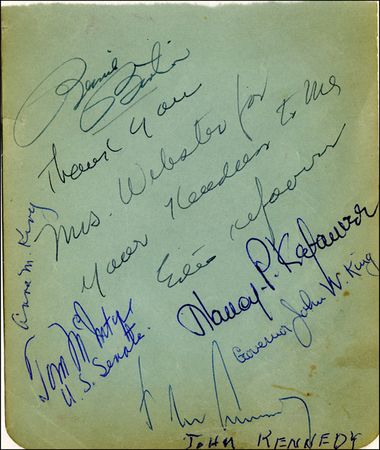 Thank You
Mrs. Webster for
Your Kindness to Me
Estes Kefauver
M. King
Nancy P. Kefauver
Governor John W. King
Tom McIntyre
U.S. Senate.
JOHN KENNEDY